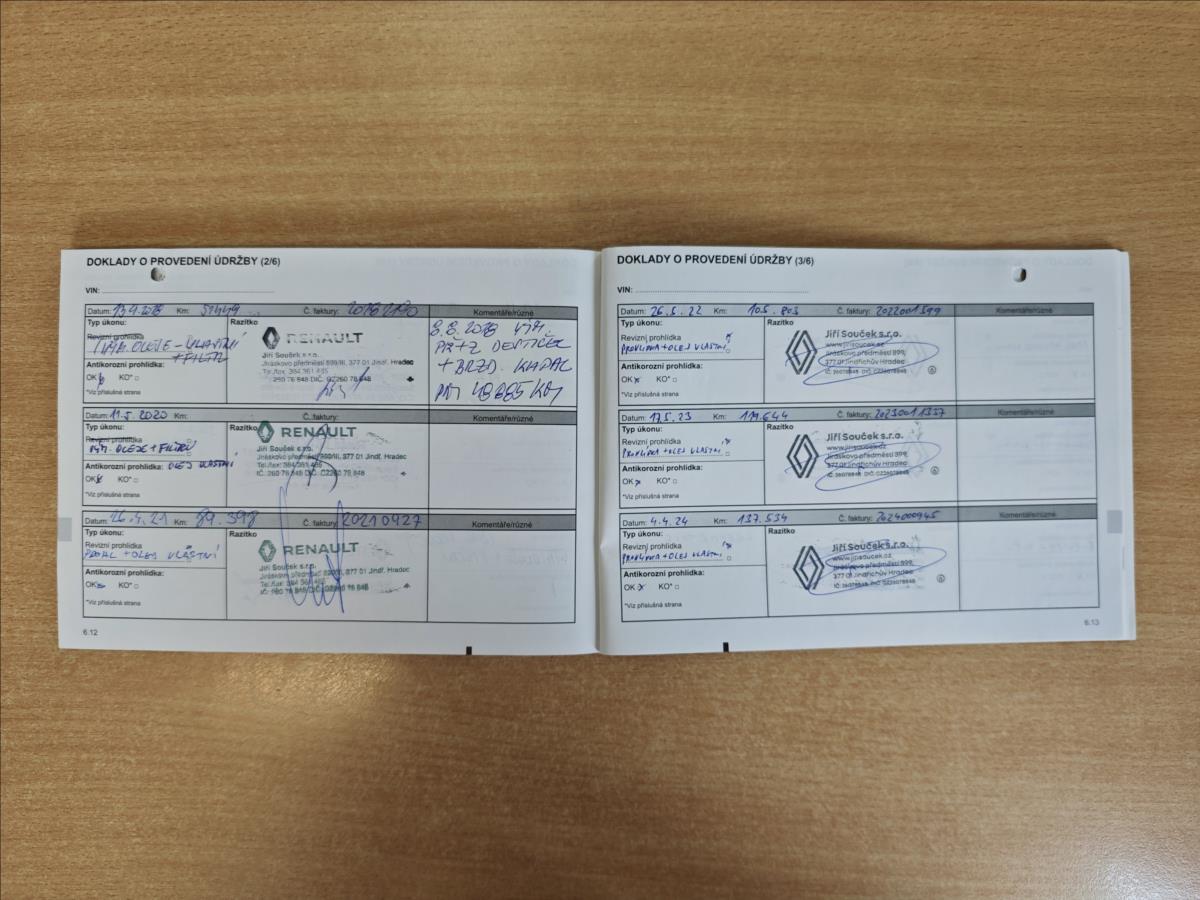 DOKLADY O PROVEDENÍ ÚDRŽBY (2/6)
VIN:
Datum: 13.9.2018 Km: 51449 Č. faktury: 20182190 Komentáře/různé
Typ úkonu: Razítko
Revizní prohlídka
VÝM. OLEJE - VLASTNÍ
+ FILTR
Antikorozní prohlídka:
OK KO*
*Viz příslušná strana
RENAULT
Jiří Souček s.r.o.
Jiráskovo předměstí 899/III, 377 01 Jindř. Hradec
Tel./fax: 384 361 485
IČ: 260 76 848 DIČ: CZ260 76 848
8.8.2018 VÝM.
PŘ+Z DESTIČEK
+ BRZD. KAPAL
Datum: 11.5.2020 Km: Č. faktury: Komentáře/různé
Typ úkonu: Razítko
Revizní prohlídka
VÝM. OLEJE + FILTRŮ
Antikorozní prohlídka: OLEJ VLASTNÍ
OK KO*
*Viz příslušná strana
RENAULT
Jiří Souček s.r.o.
Jiráskovo předměstí 899/III, 377 01 Jindř. Hradec
Tel./fax: 384/361 485
IČ: 260 76 848 DIČ: CZ260 76 848
Datum: 26.4.21 Km: 89.398 Č. faktury: 20210427 Komentáře/různé
Typ úkonu: Razítko
Revizní prohlídka
+ OLEJ VLASTNÍ
Antikorozní prohlídka:
OK KO*
*Viz příslušná strana
RENAULT
Jiří Souček s.r.o.
Jiráskovo předměstí 899/III, 377 01 Jindř. Hradec
Tel./fax: 384 361 485
IČ: 260 76 848 DIČ: CZ260 76 848
6.12
DOKLADY O PROVEDENÍ ÚDRŽBY (3/6)
VIN:
Datum: 26.5.22 Km: 105.803 Č. faktury: 2022001599 Komentáře/různé
Typ úkonu: Razítko
Revizní prohlídka
PROHLÍDKA + OLEJ VLASTNÍ
Antikorozní prohlídka:
OK KO*
*Viz příslušná strana
Jiří Souček s.r.o.
www.jirisoucek.cz
Jiráskovo předměstí 899,
377 01 Jindřichův Hradec
IČ: 26076848 DIČ: CZ26076848
Datum: 17.5.23 Km: 119.644 Č. faktury: 2023001337 Komentáře/různé
Typ úkonu: Razítko
Revizní prohlídka
PROHLÍDKA + OLEJ VLASTNÍ
Antikorozní prohlídka:
OK KO*
*Viz příslušná strana
Jiří Souček s.r.o.
www.jirisoucek.cz
Jiráskovo předměstí 899,
377 01 Jindřichův Hradec
IČ: 26076848 DIČ: CZ26076848
Datum: 4.4.24 Km: 137.534 Č. faktury: 2024000945 Komentáře/různé
Typ úkonu: Razítko
Revizní prohlídka
PROHLÍDKA + OLEJ VLASTNÍ
Antikorozní prohlídka:
OK KO*
*Viz příslušná strana
Jiří Souček s.r.o.
www.jirisoucek.cz
Jiráskovo předměstí 899,
377 01 Jindřichův Hradec
IČ: 26076848 DIČ: CZ26076848
6.13